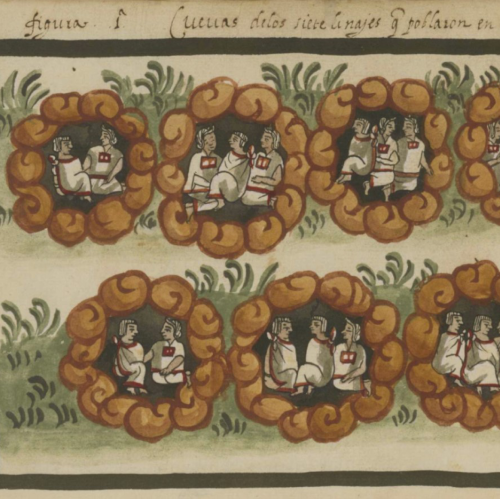 figura. 1ª Cuevas delos siete linajes q̃ poblaron en